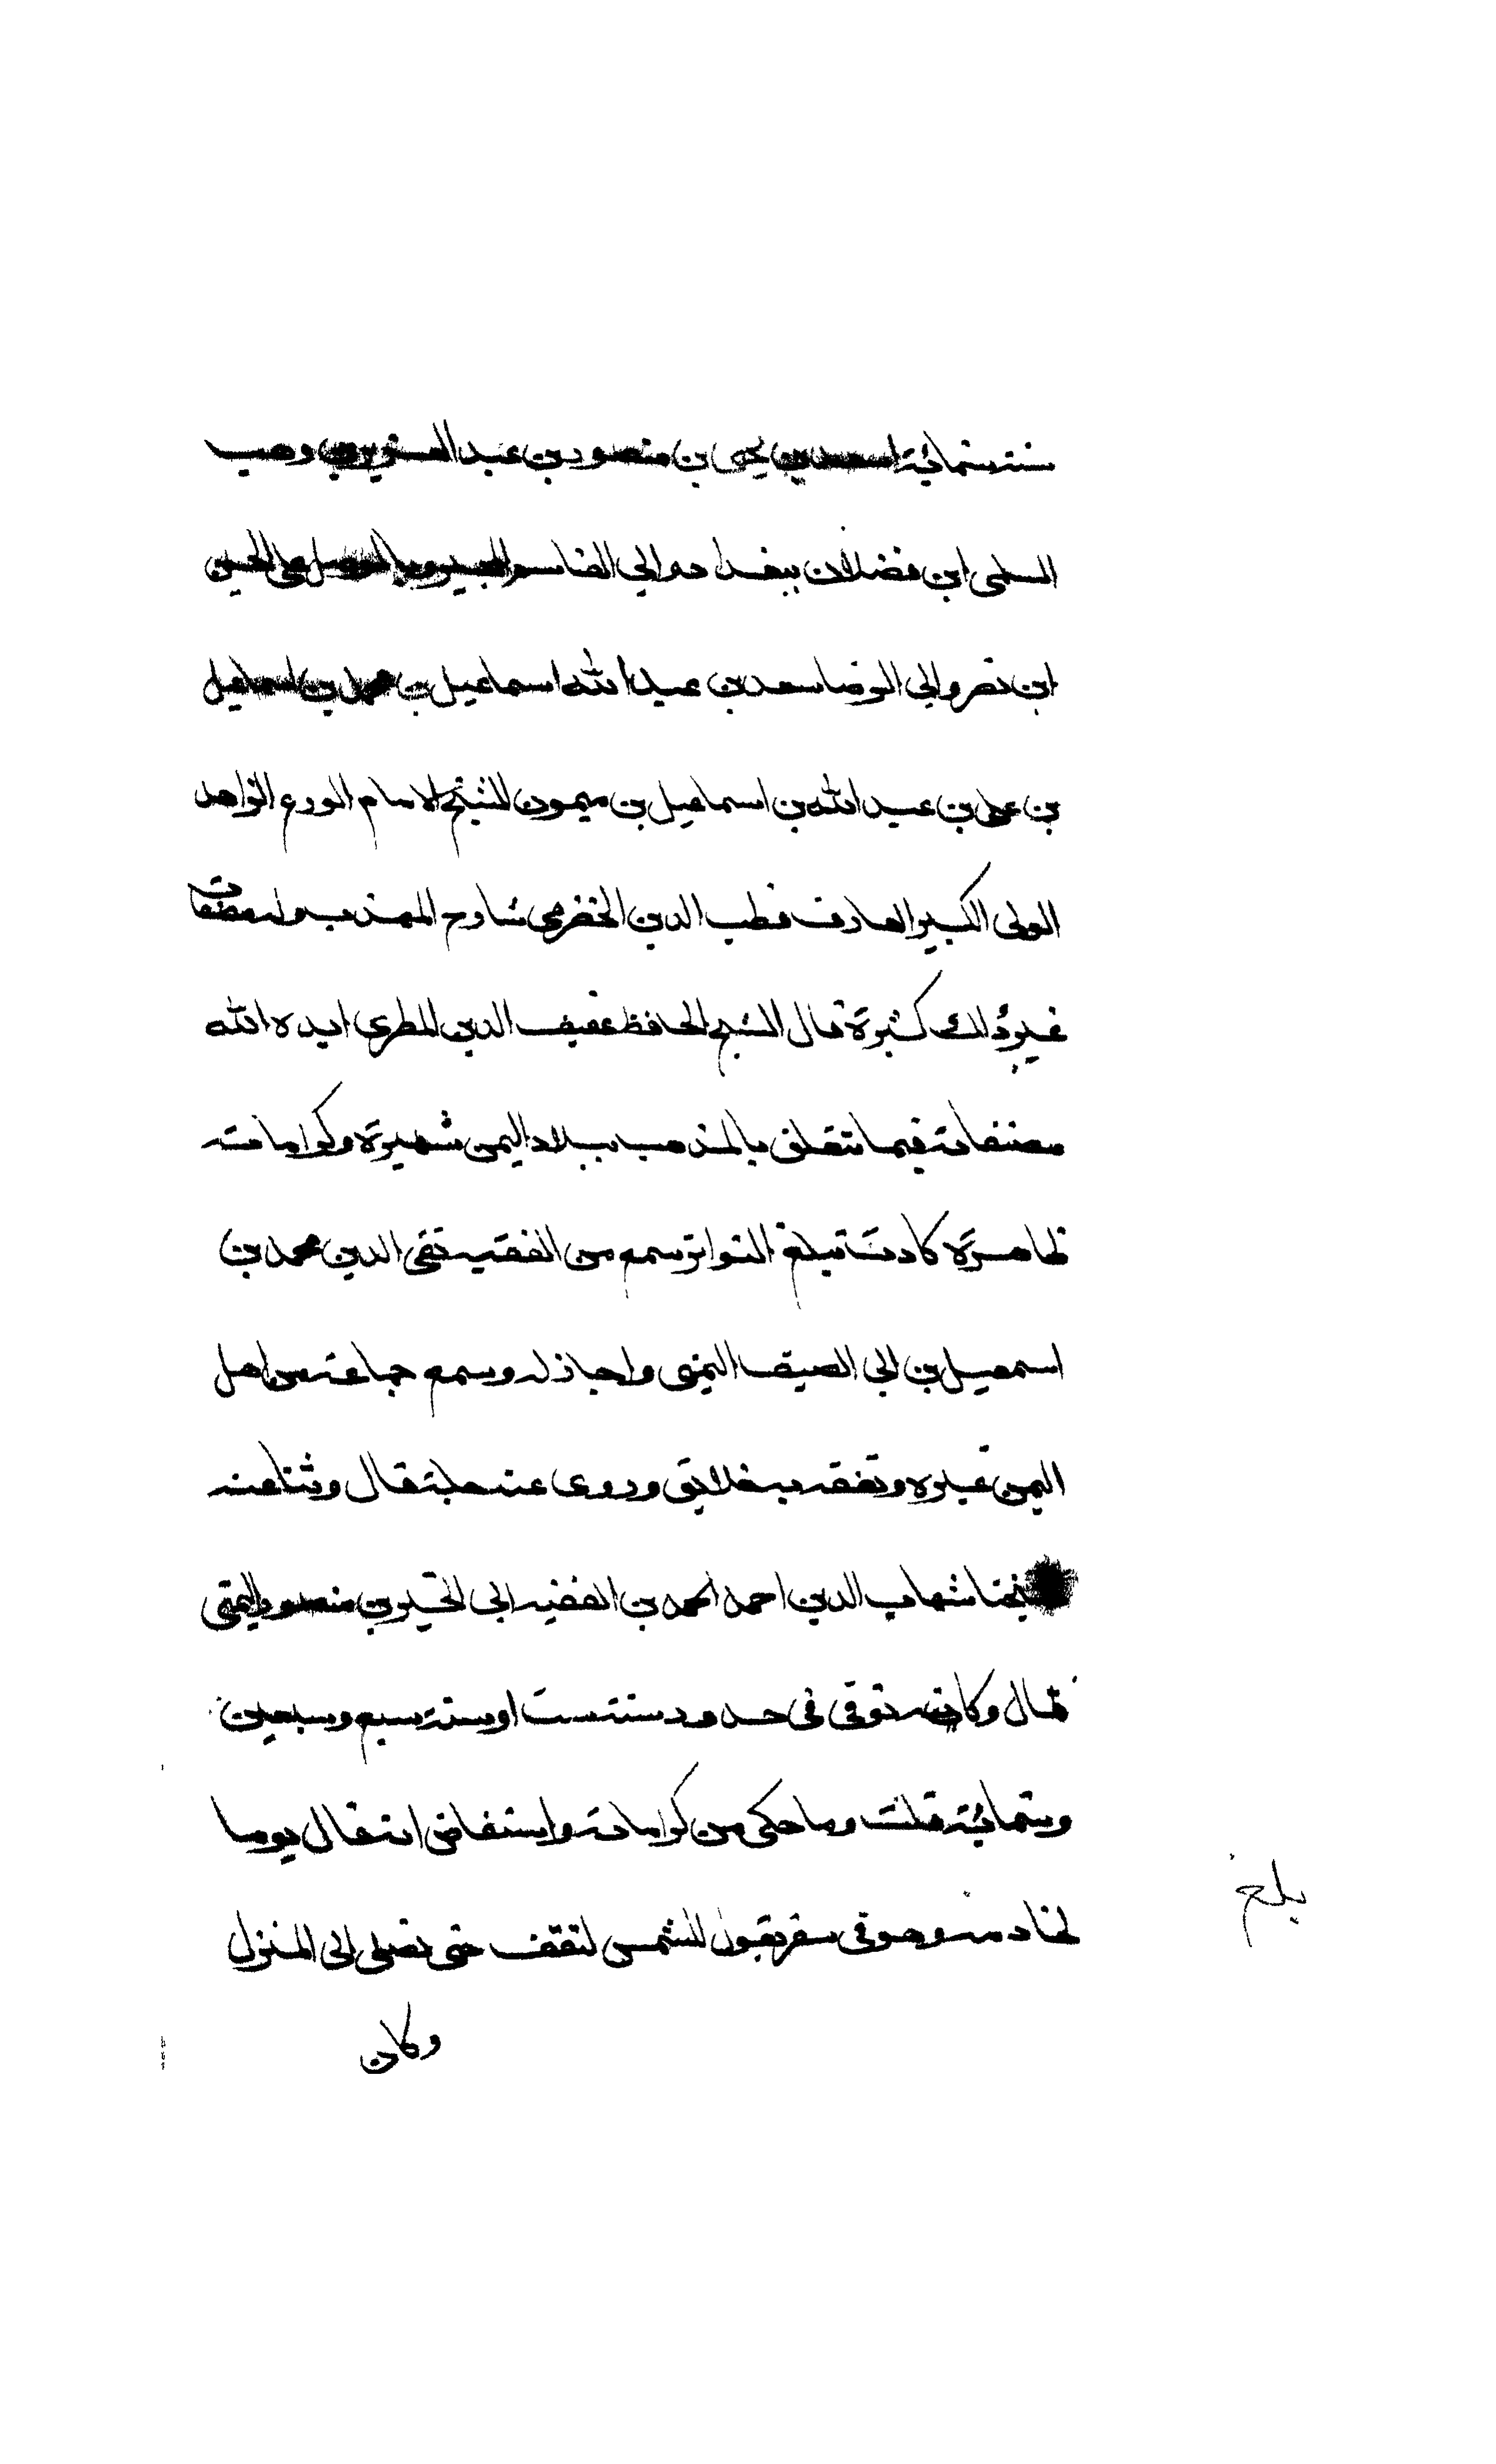 سنة ستمائة اسعد بن يحيى بن منصور بن عبد العزيز بن وهب
السلمى ابن فضلان ببغداد وابي القاسم المجير وبالموصل على الحسين
ابن نصر وابي الرضا سعد بن عبد الله اسماعيل بن محمد بن اسماعيل
بن على بن عبد الله بن اسماعيل بن ميمون الشيخ الامام الورع الزاهد
الولى الكبير العارف قطب الدين الحضرمي شارح المهذب وله مصنفات
غير ذلك كثيرة قال الشيخ الحافظ عفيف الدين المطري ايده الله
مصنفاته فيما تتعلق بالمذهب ببلاد اليمن شهيرة وكراماته
ظاهرة كادت تبلغ التواتر سمع من الفقيه تقي الدين محمد بن
اسمعيل بن ابي الصيف اليمني واجاز له وسمع جماعة من اهل
اليمن غيره وتفقه به خلايق وروى عنه جلة قال وثنا عنه
شيخنا شهاب الدين احمد احمد بن الفقيه ابي الخير بن منصور اليمني
قال وكانه توفي في حدود سنة ست او سنة سبع وسبعين
وستمائة قلت وما حكي من كراماته واستفاض انه قال يوما
لخادمه وهو في سفر يقول للشمس لتقف حتى نصلى الى المنزل
وكان
بلغ